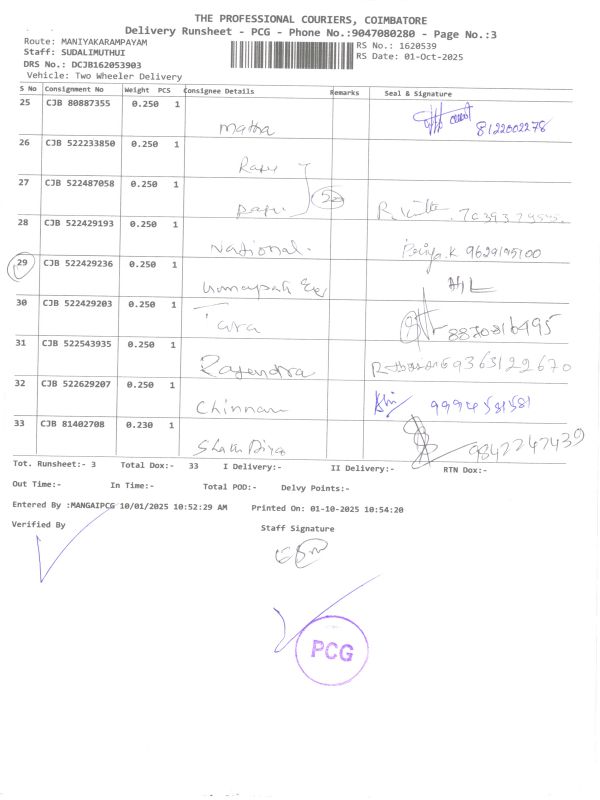 THE PROFESSIONAL COURIERS, COIMBATORE
Delivery Runsheet - PCG - Phone No.:9047080280 - Page No.:3
Route: MANIYAKARAMPAYAM
RS No.: 1620539
Staff: SUDALIMUTHUI
RS Date: 01-Oct-2025
DRS No.: DCJB162053903
Vehicle: Two Wheeler Delivery
S No Consignment No Weight PCS Consignee Details Remarks Seal & Signature
25 CJB 80887355 0.250 1 Matha 8122002278
26 CJB 522233850 0.250 1
27 CJB 522487058 0.250 1
28 CJB 522429193 0.250 1 National. Priya.K 9629195100
29 CJB 522429236 0.250 1
30 CJB 522429203 0.250 1 Tara 8870816495
31 CJB 522543935 0.250 1 Rajendra 9363122670
32 CJB 522629207 0.250 1 Chinnan 9994581581
33 CJB 81402708 0.230 1 9842247439
Tot. Runsheet:- 3 Total Dox:- 33 I Delivery:- II Delivery:- RTN Dox:-
Out Time:- In Time:- Total POD:- Delvy Points:-
Entered By :MANGAIPCG 10/01/2025 10:52:29 AM Printed On: 01-10-2025 10:54:20
Verified By Staff Signature
PCG